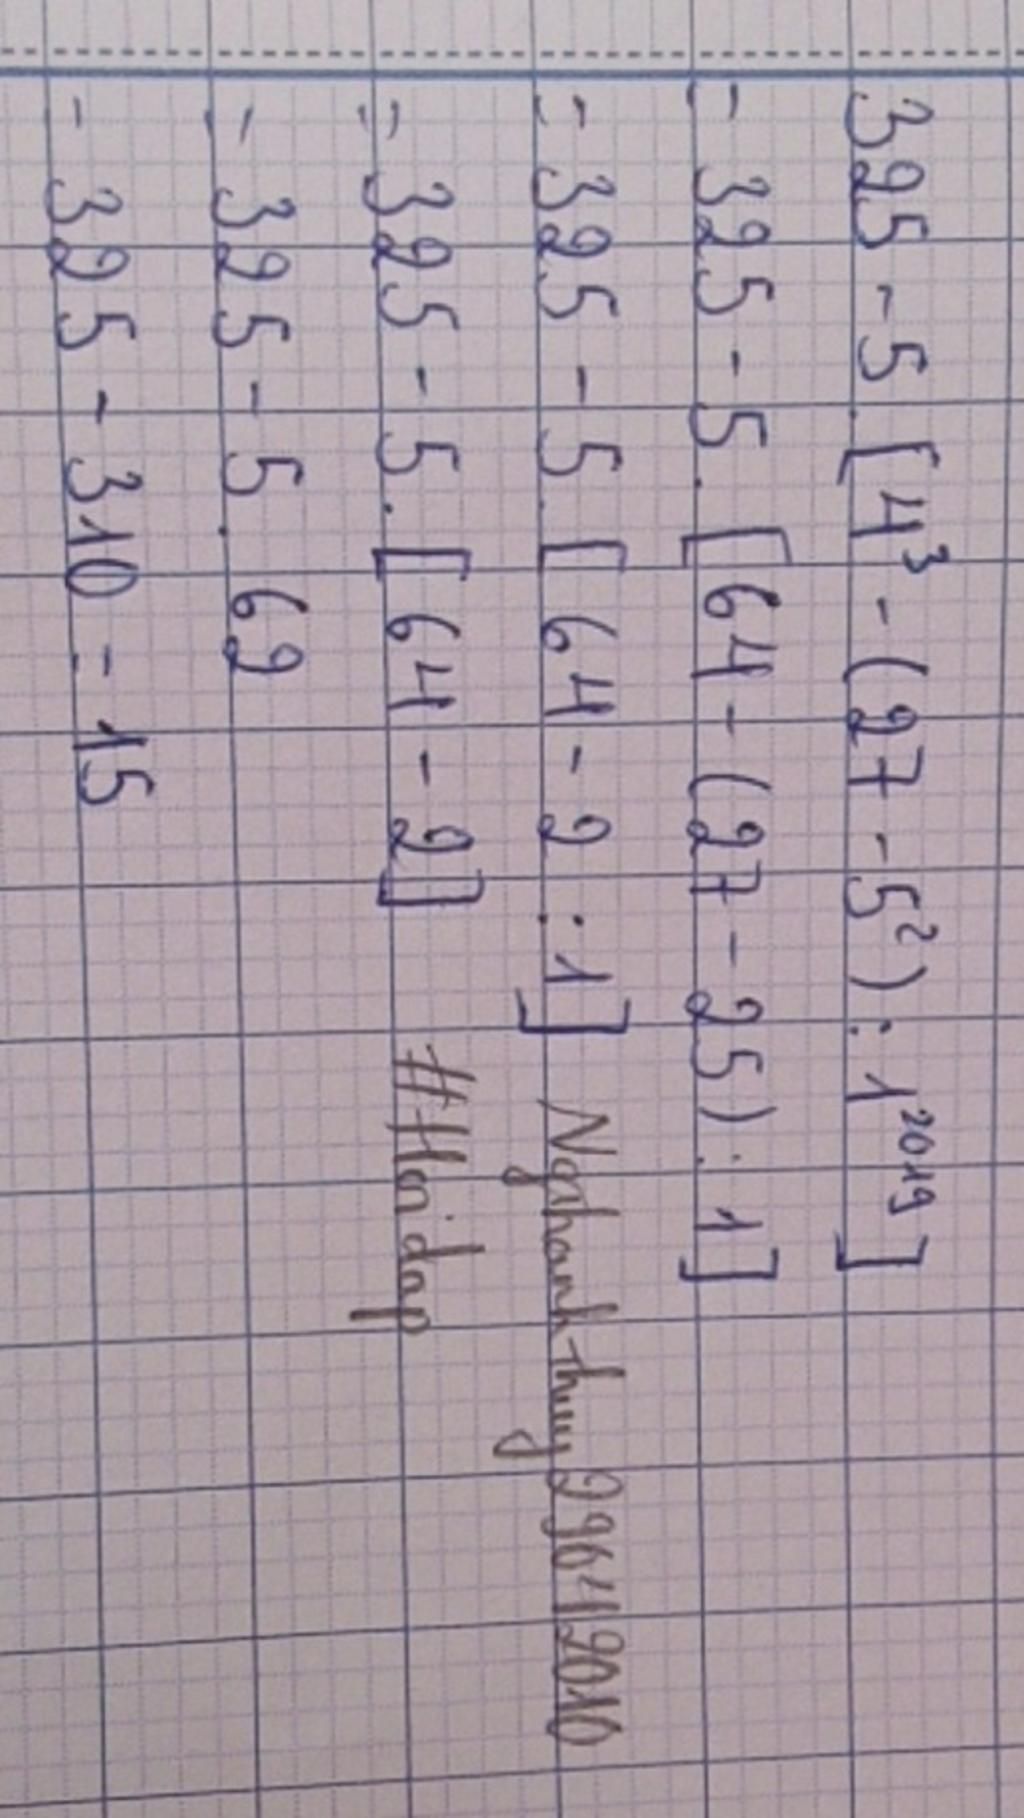 325 - 5.[4³ - (27 - 5²) : 1²⁰¹⁹]
= 325 - 5.[64 - (27 - 25) : 1]
= 325 - 5.[64 - 2 : 1]
Nguhanhthuy29642010
= 325 - 5.[64 - 2]
#Hoidap
= 325 - 5.62
= 325 - 310 = 15